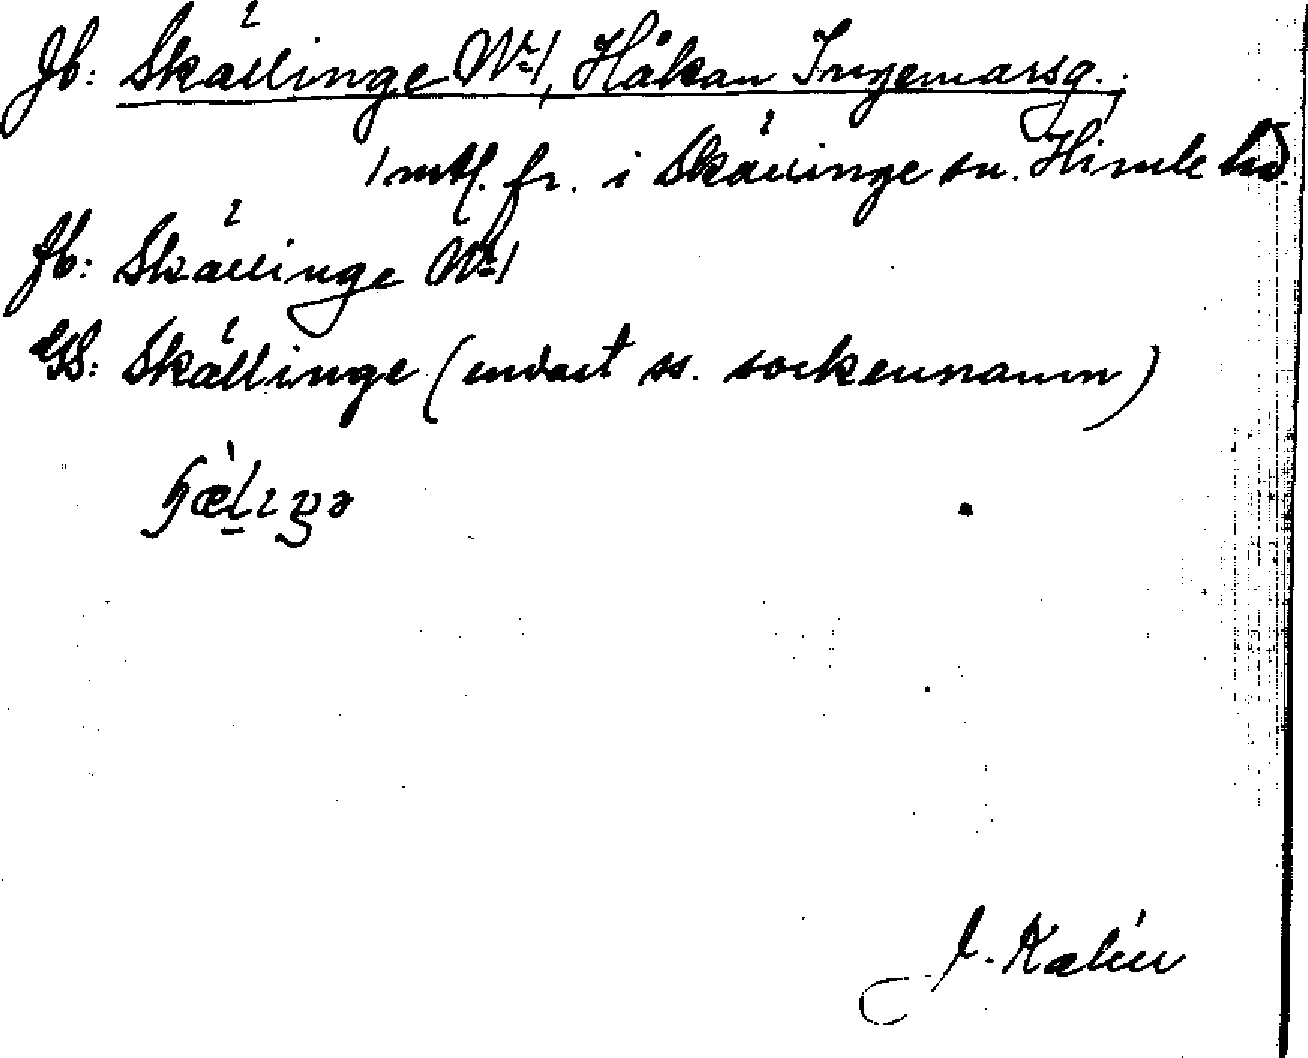 Jb: Skällinge Nr 1, Håkan Ingemarsg.
1 mtl. fr. i Skällinge sn. Himle hd
Jb: Skällinge Nr 1
GS: Skällinge (endast ss. sockennamn)
J. Kalén